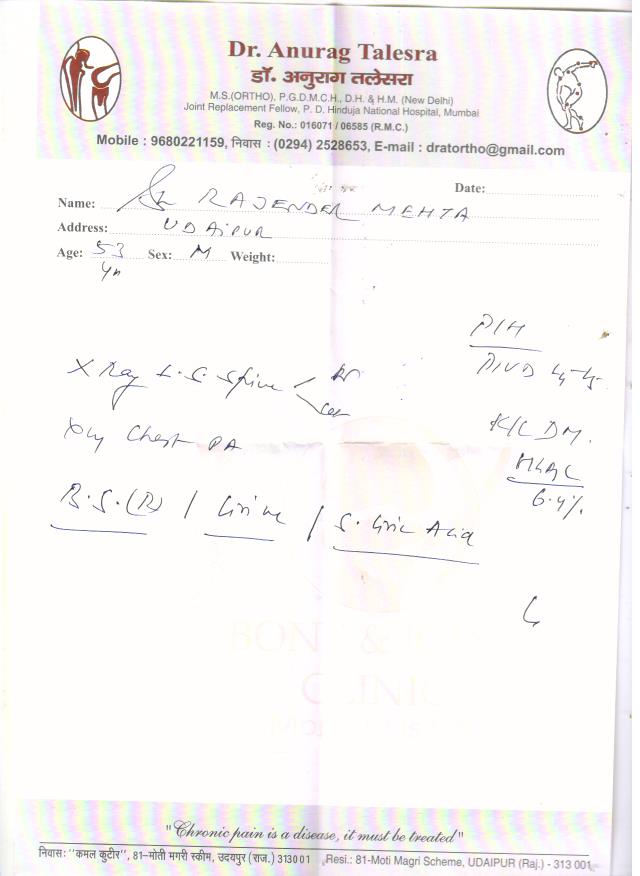 Dr. Anurag Talesra
डॉ. अनुराग तलेसरा
M.S.(ORTHO), P.G.D.M.C.H., D.H. & H.M. (New Delhi)
Joint Replacement Fellow, P. D. Hinduja National Hospital, Mumbai
Reg. No.: 016071 / 06585 (R.M.C.)
Mobile : 9680221159, निवास : (0294) 2528653, E-mail : dratortho@gmail.com
Date:
Name: RAJENDER MEHTA
Address: UDAIPUR
Age: 53 Sex: M Weight:
P/H
PIVD L4-L5
X Ray L.S. Spine
K/C DM.
X Ray Chest PA
HbA1C
6.4%
B.S.(R) / Urine / S. Uric Acid
BONE &
CLINIC
"Chronic pain is a disease, it must be treated"
निवास: "कमल कुटीर", 81–मोती मगरी स्कीम, उदयपुर (राज.) 313001 Resi.: 81-Moti Magri Scheme, UDAIPUR (Raj.) - 313 001